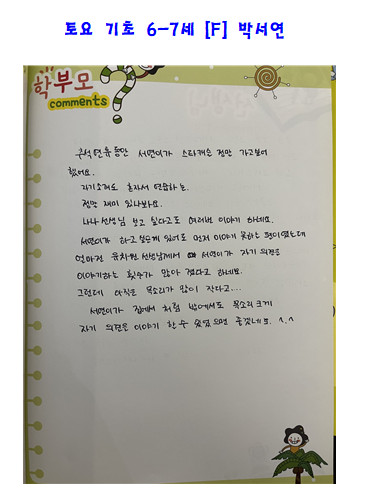 토요 기초 6-7세 [F] 박서연
학부모
comments
추석 연휴동안 서연이가 스타캐슬 점만 가고싶어
했어요.
자기소개도 혼자서 연습하는.
정말 재미 있나봐요.
나나 선생님 보고 싶다고도 여러번 이야기 하네요.
서연이가 하고싶은게 있어도 먼저 이야기 못하는 편이였는데
얼마전 유치원 선생님께서 서연이가 자기 의견을
이야기하는 횟수가 많아 졌다고 하네요.
그런데 아직은 목소리가 많이 작다고...
서연이가 집에서 처럼 밖에서도 목소리 크게
자기 의견을 이야기 할 수 있었으면 좋겠네요. ^.^